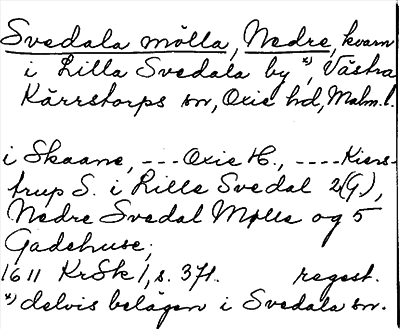 Svedala mölla, Nedre, kvarn
i Lilla Svedala by *), Västra
Kärrstorps sn, Oxie hd, Malm. l.
i Skaane, --- Oxie H., ---- Kiers-
trup S. i Lille Svedal 2(G),
Nedre Svedal Mølle og 5
Gadehuse;
1611 KrSk 1, s. 371. regest.
*) delvis belägen i Svedala sn.